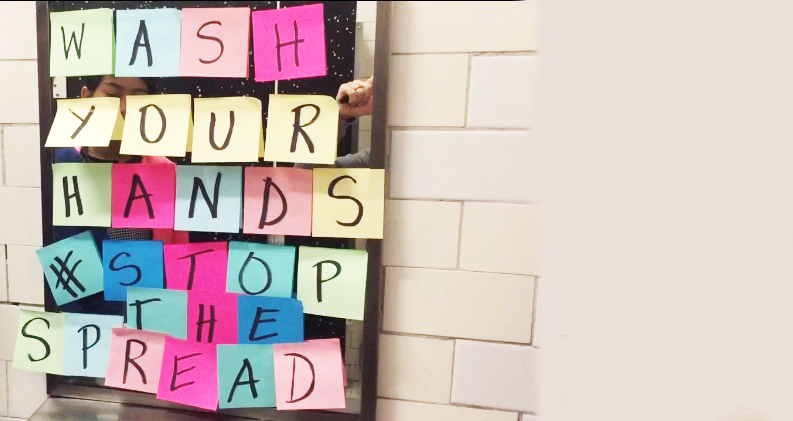 WASH
YOUR
HANDS
#STOP
THE
SPREAD